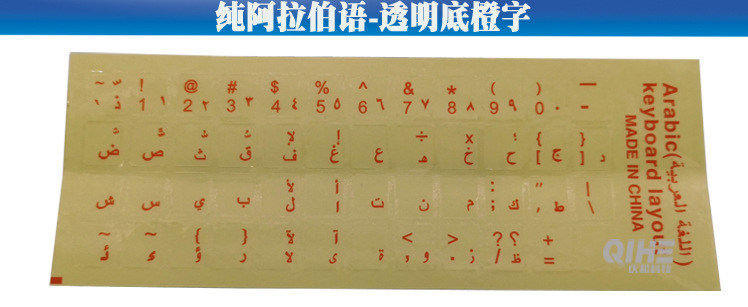 纯阿拉伯语-透明底橙字
~ ! @ # $ % ^ & * ( )
ذ 1 ١ 2 ٢ 3 ٣ 4 ٤ 5 ٥ 6 ٦ 7 ٧ 8 ٨ 9 ٩ 0 ٠ -
لإ إ ÷ x ؛
ض ص ث ق ف غ ع ه خ ح ج
لأ أ : "
ش س ي ب ل ا ت ن م ك ط
~ ~ { } لآ آ < > ? ؟ +
ئ ء ؤ ر لا ى ة و . ز / ظ =
Arabic(اللغة العربية)
keyboard layout
MADE IN CHINA
QIHE